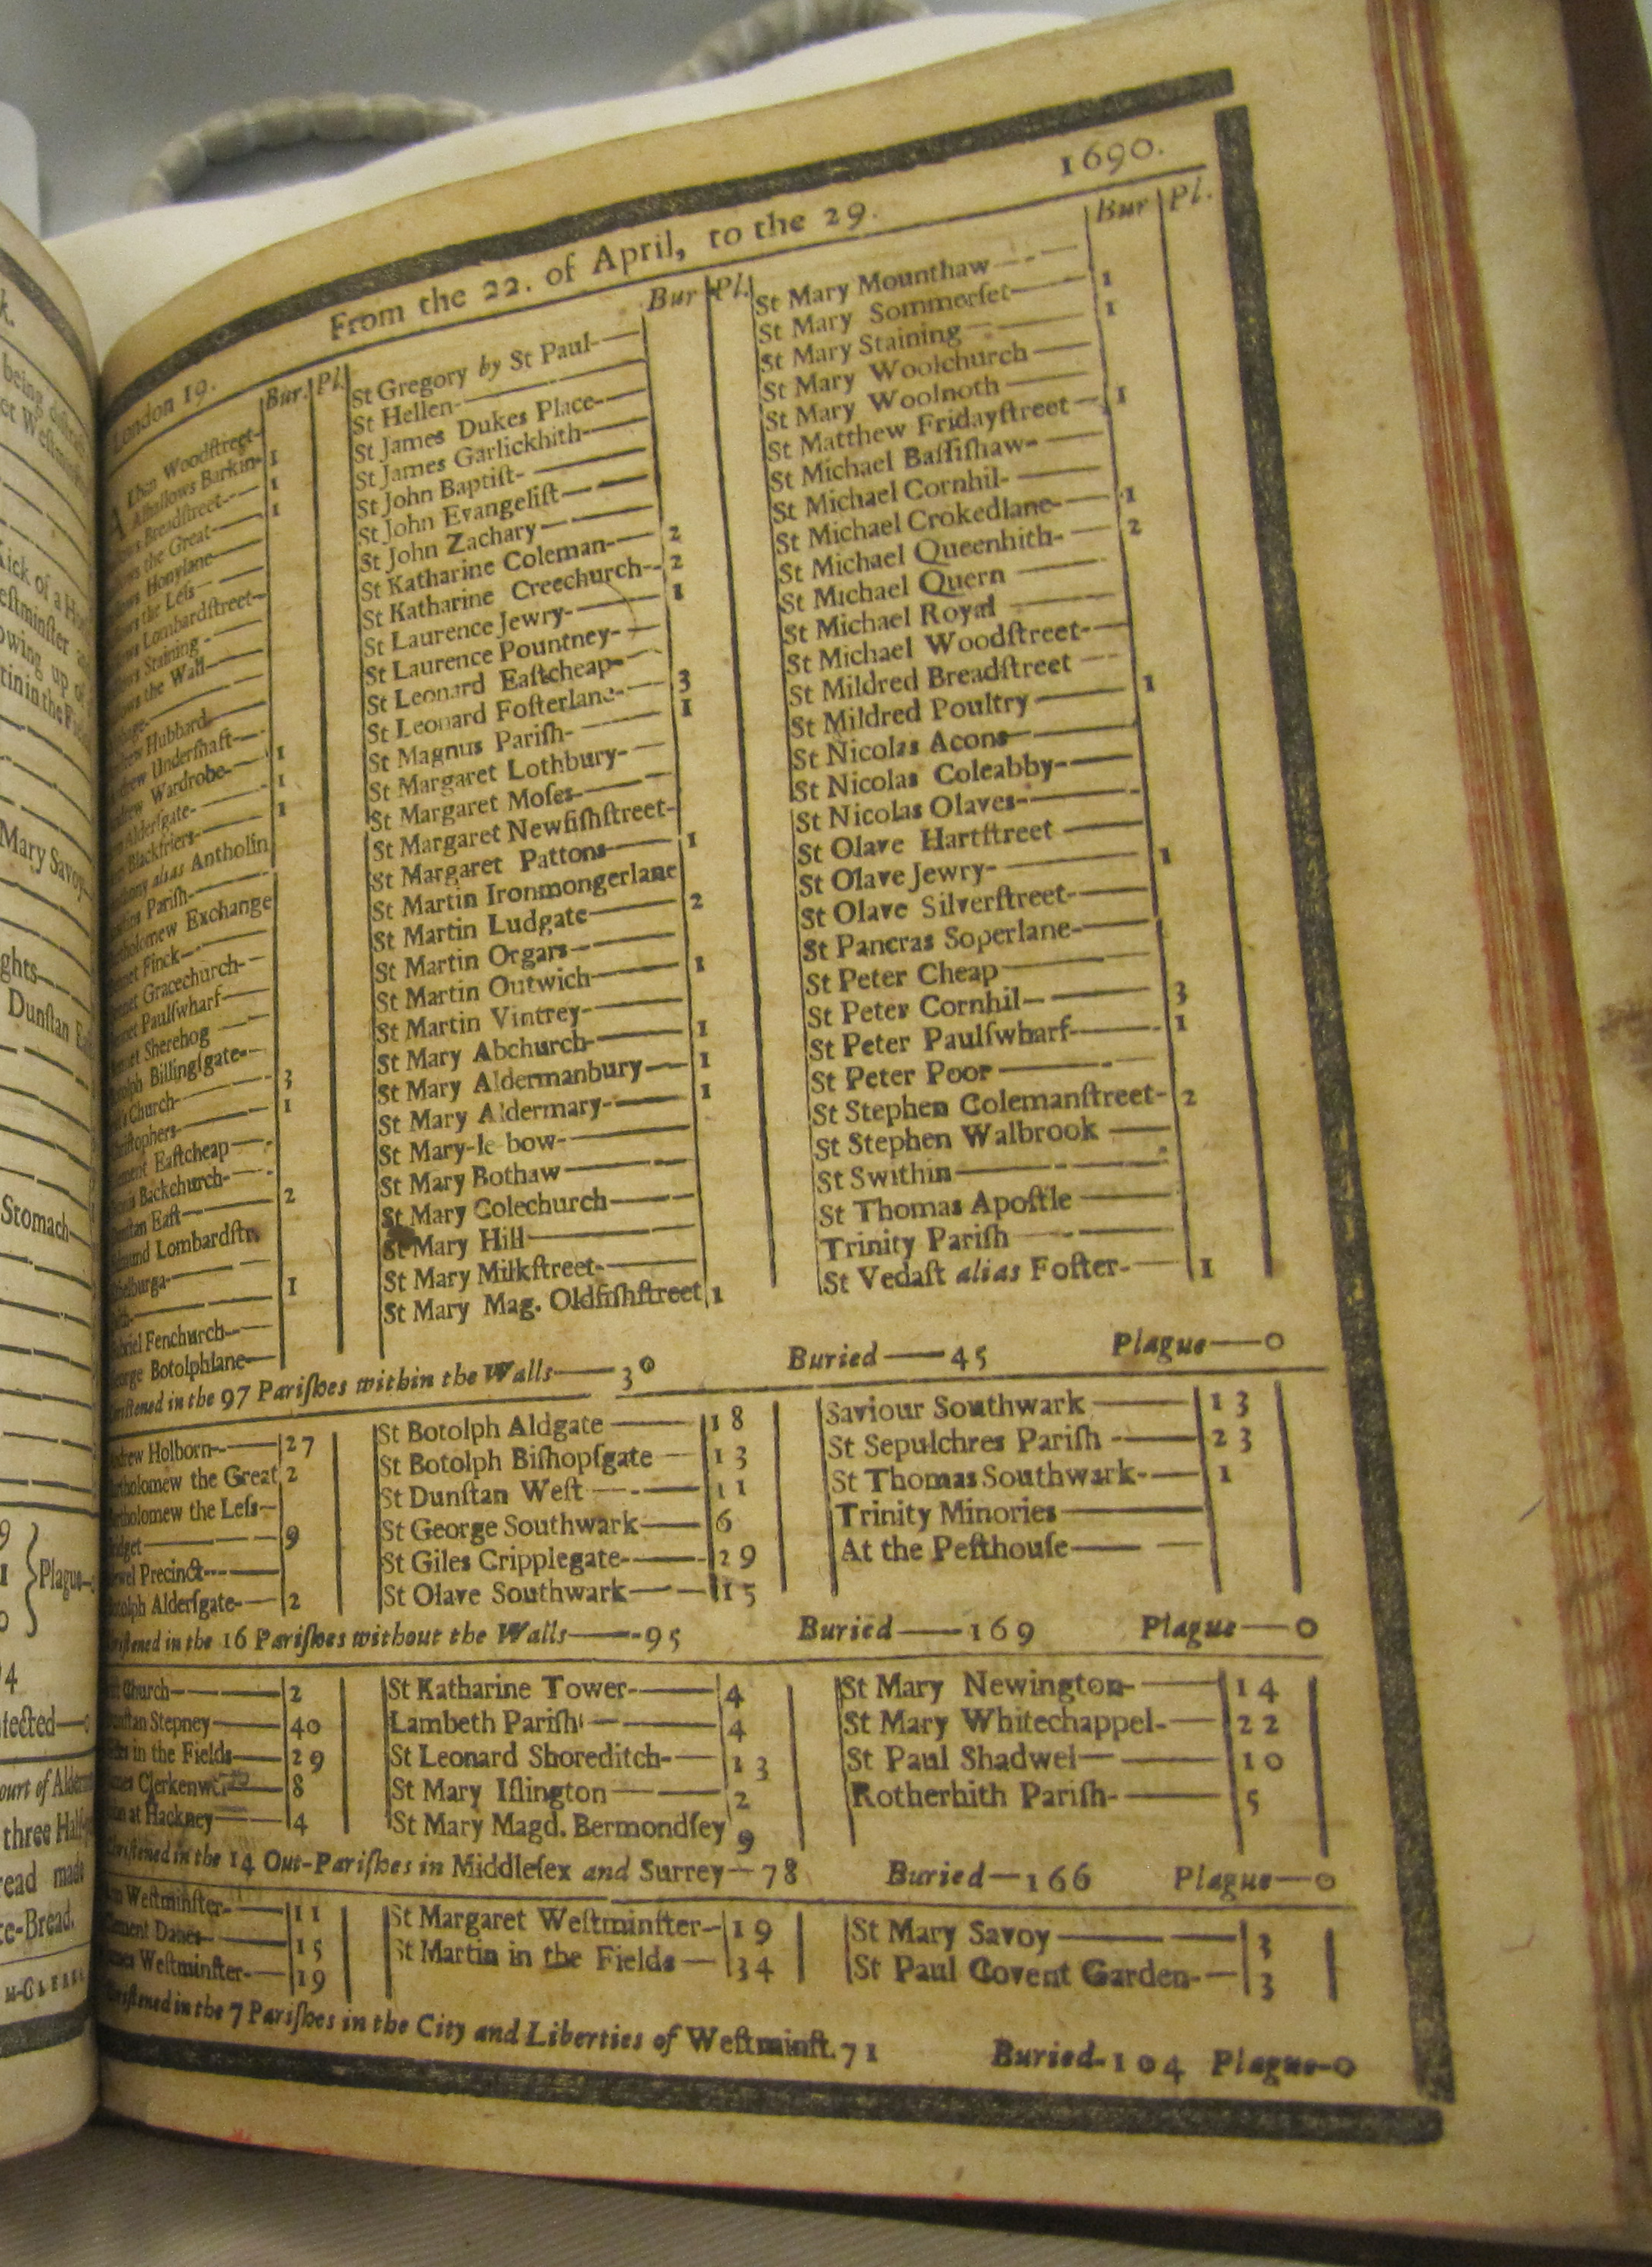 1690.
From the 22. of April, to the 29.
London 19.
Bur. Pl.
Alban Woodſtreet-
Alhallows Barkin- 1
Breadſtreet--- 1
the Great— 1
Honylane—
the Leſs—
Lombardſtreet—
Staining -
the Wall—
Hubbard—
Underſhaft—
Wardrobe— 1
Alderſgate- 1
Blackfriers- 1
alias Antholin
Pariſh-
Exchange
Finck—
Gracechurch-
Paulſwharf
Sherehog
Billingſgate-
Church— 3
1
Eaſtcheap
Backchurch-
Eaſt— 2
Lombardſtr.
1
Fenchurch
Botolphlane
Bur Pl.
St Gregory by St Paul-
St Hellen-
St James Dukes Place-
St James Garlickhith-
St John Baptiſt-
St John Evangeliſt—
St John Zachary—
St Katharine Coleman- 2
St Katharine Creechurch- 2
St Laurence Jewry- 1
St Laurence Pountney-
St Leonard Eaſtcheap-
St Leonard Foſterlane- 3
St Magnus Pariſh- 1
St Margaret Lothbury-
St Margaret Moſes—
St Margaret Newfiſhſtreet-
St Margaret Pattons— 1
St Martin Ironmongerlane
St Martin Ludgate— 2
St Martin Orgars—
St Martin Outwich— 1
St Martin Vintrey-
St Mary Abchurch- 1
St Mary Aldermanbury— 1
St Mary Aldermary- 1
St Mary-le bow-
St Mary Bothaw—
St Mary Colechurch—
St Mary Hill—
St Mary Milkſtreet-
St Mary Mag. Oldfiſhſtreet 1
Bur Pl.
St Mary Mounthaw
St Mary Sommerſet— 1
St Mary Staining 1
St Mary Woolchurch
St Mary Woolnoth
St Matthew Fridayſtreet 1
St Michael Baſſiſhaw-
St Michael Cornhil-
St Michael Crokedlane- 1
St Michael Queenhith- 2
St Michael Quern
St Michael Royal
St Michael Woodſtreet-
St Mildred Breadſtreet
St Mildred Poultry 1
St Nicolas Acons—
St Nicolas Coleabby-
St Nicolas Olaves-
St Olave Hartſtreet
St Olave Jewry- 1
St Olave Silverſtreet-
St Pancras Soperlane-
St Peter Cheap
St Peter Cornhil— 3
St Peter Paulſwharf— 1
St Peter Poor
St Stephen Colemanſtreet- 2
St Stephen Walbrook
St Swithin
St Thomas Apoſtle
Trinity Pariſh
St Vedaſt alias Foſter- 1
in the 97 Pariſhes within the Walls—30 Buried—45 Plague—0
Holborn-—27
the Great 2
the Leſs—
9
Precinct---
Alderſgate-—2
St Botolph Aldgate —18
St Botolph Biſhopſgate —13
St Dunſtan Weſt —11
St George Southwark—6
St Giles Cripplegate-—29
St Olave Southwark—15
Saviour Southwark —13
St Sepulchres Pariſh -—23
St Thomas Southwark-—1
Trinity Minories—
At the Peſthouſe—
in the 16 Pariſhes without the Walls—95 Buried—169 Plague—0
Church—2
Stepney—40
in the Fields—29
8
at Hackney—4
St Katharine Tower-—4
Lambeth Pariſh —4
St Leonard Shoreditch-—13
St Mary Iſlington—2
St Mary Magd. Bermondſey 9
St Mary Newington-—14
St Mary Whitechappel-—22
St Paul Shadwel—10
Rotherhith Pariſh-—5
in the 14 Out-Pariſhes in Middleſex and Surrey—78 Buried—166 Plague—0
Weſtminſter-—11
Danes—15
Weſtminſter-—19
St Margaret Weſtminſter-19
St Martin in the Fields—34
St Mary Savoy—3
St Paul Covent Garden-—3
in the 7 Pariſhes in the City and Liberties of Weſtminſt. 71 Buried-104 Plague-0
Mary Savoy
Stomach
Plague
three
made